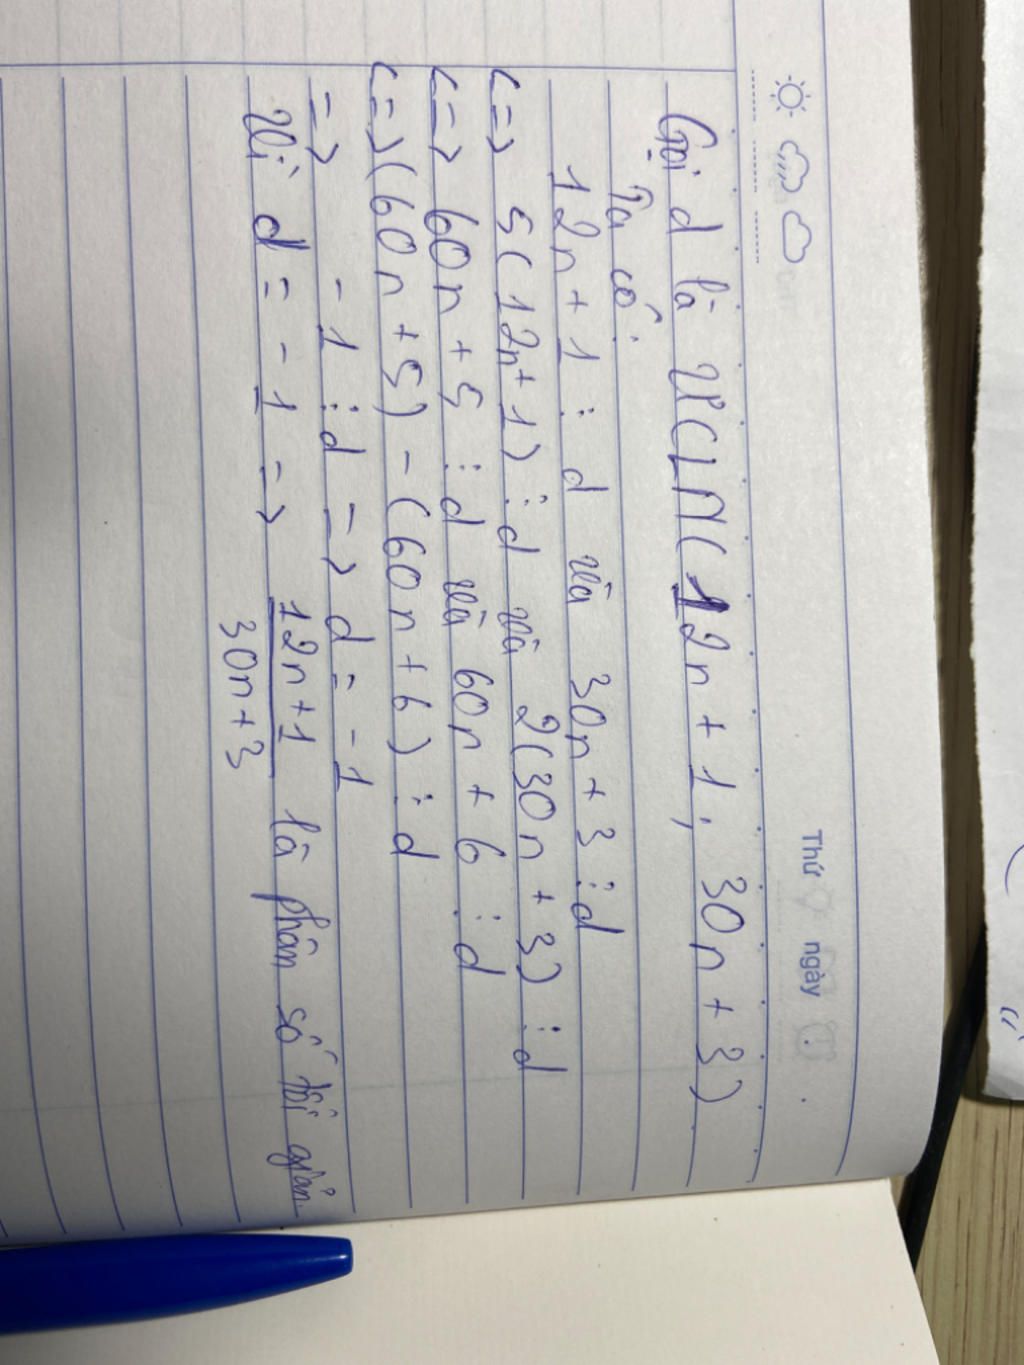 Thứ ngày
Gọi d là ƯCLN(12n + 1; 30n + 3)
Ta có:
12n + 1 ⋮ d và 30n + 3 ⋮ d
<=> 5(12n + 1) ⋮ d và 2(30n + 3) ⋮ d
<=> 60n + 5 ⋮ d và 60n + 6 ⋮ d
<=> (60n + 5) - (60n + 6) ⋮ d
=> - 1 ⋮ d => d = - 1
Vì d = - 1 => 12n + 1 / 30n + 3 là phân số tối giản.